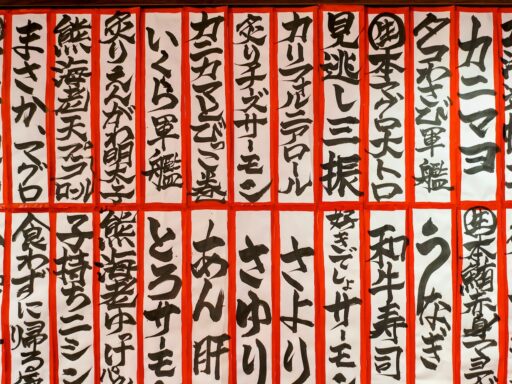 カニマヨ
タコわさび軍艦
生本マグロ大トロ
見逃し三振
カリフォルニアロール
炙りチーズサーモン
カニカマとびっこ巻
いくら軍艦
炙りえんがわ明太子
熊海老天
まさか、マグロ
生本鮪赤身
うなぎ
和牛寿司
好きでしょサーモン
さより
さゆり
あん肝
とろサーモン
熊海老ゆっけ
子持ちニシン
食わずに帰る